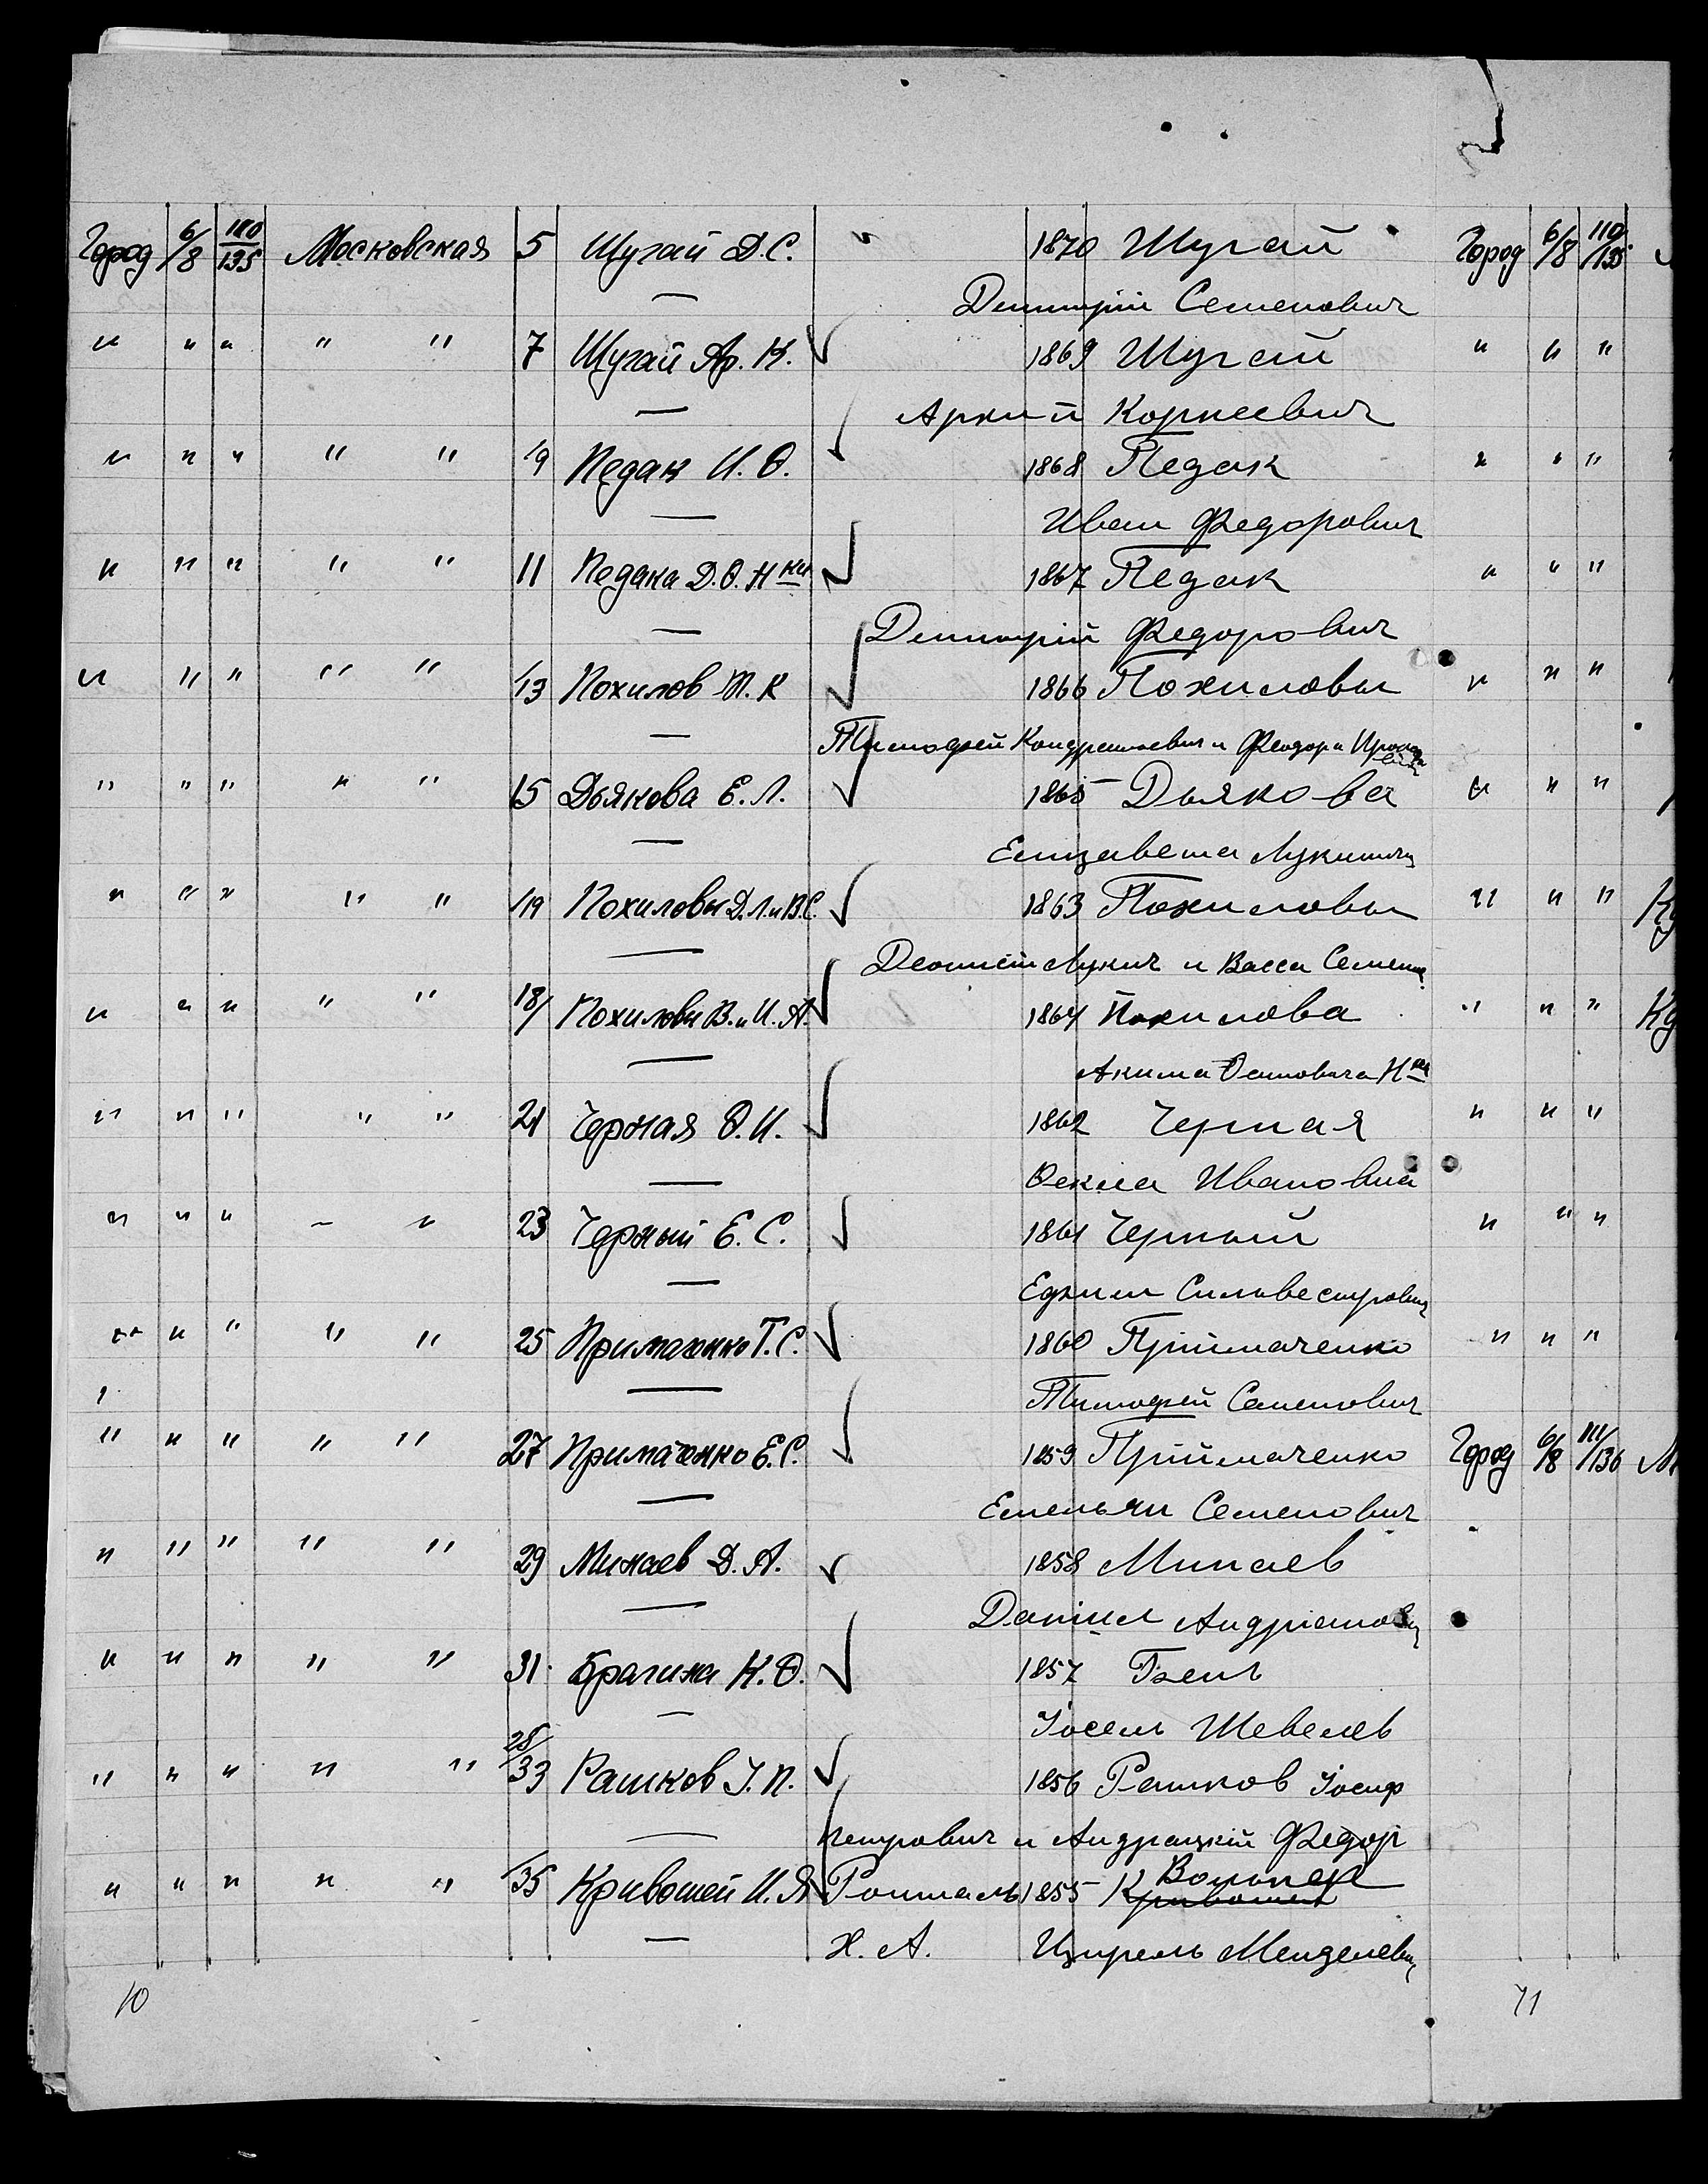 Город 6/8 110/135 Московская 5 Шугай Д.С. " 1870 Шугай Город 6/8 110/135
— Димитрій Семенович
" " " " " 7 Шугай Ар. К. 1869 Шугай " " "
— Архип Корнеевич
" " " " " 9 Педан И. Ѳ. 1868 Педак " " "
— Иван Федорович
" " " " " 11 Педана Д.Ѳ. Н-ки 1867 Педак " " "
— Димитрій Федорович
" " " " " 13 Похилов Т. К 1866 Похиловы " " "
— Тимофей Кондратьевич и Феодора
" " " " " 15 Дьякова Е. Л. 1865 Дьякова " " "
— Елизавета
" " " " " 19 Похиловы Д.Л. и В.С. 1863 Похиловы " " "
— Леонтій Лукич и Васса Семен
" " " " " 18/ Похиловы В. и И. А. 1864 Похилова " " "
— Акима Н-ки
" " " " " 21 Черная Ѳ. И. 1862 Черная " " "
— Ѳекла Ивановна
" " " " " 23 Черный Е. С. 1861 Черный " " "
— Ефим Сильвестрович
" " " " " 25 Примаченко Т. С. 1860 Пріймаченко " " "
— Тимофей Семенович
" " " " " 27 Примаченко Е. С. 1859 Пріймаченко Город 6/8 111/136 М
— Емельян Семенович
" " " " " 29 Минаев Д. А. 1858 Минаев
— Даніил Андріанович
" " " " " 31 Брагина К. Ѳ. 1857
— Іосель Шевелев
" " " " " 28/33 Рашков І. П. 1856 Рашков Іосиф
— Петрович и Андрацкій Федор
" " " " " 35 Кривошей И. Я Ронталь 1855 Кривошей
— Х. А. Цирель Менделевич
10 11